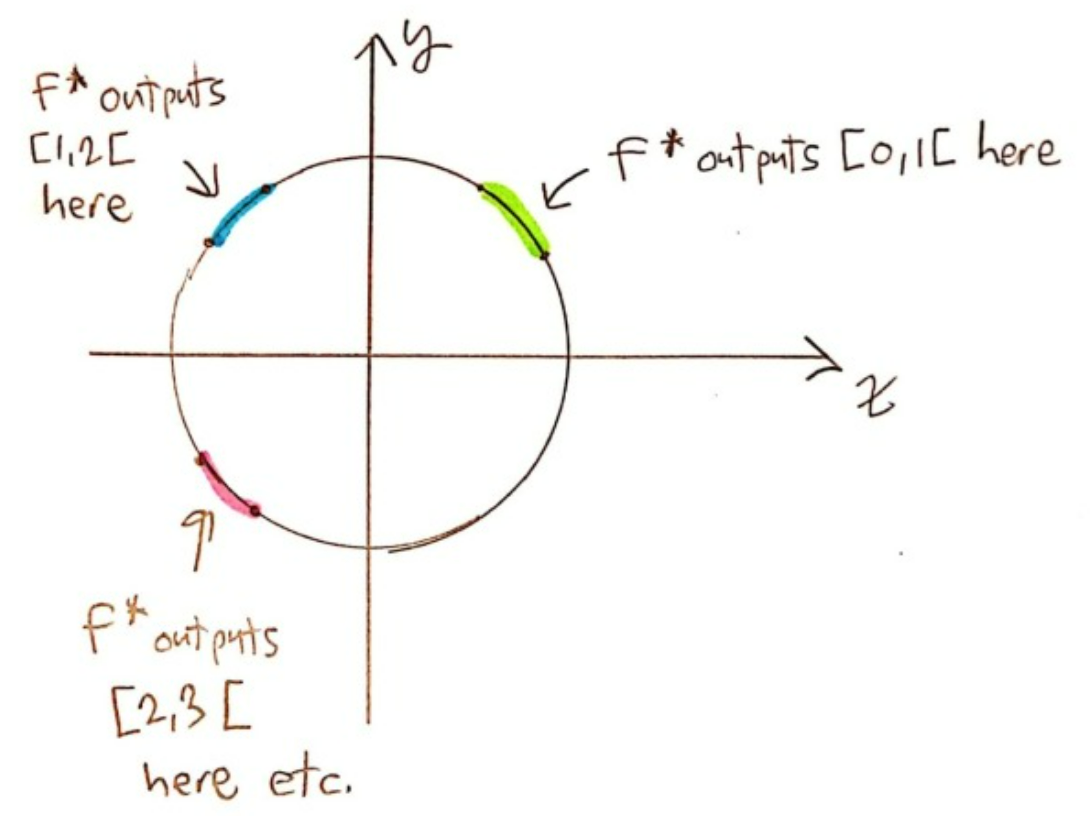 y
f* outputs
[1,2[
here
f* outputs [0,1[ here
x
f* outputs
[2,3[
here etc.